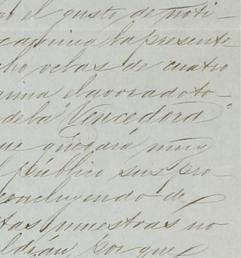 el gusto de noti-
la presente
cho velas de cuatro
elavorado to-
de la "Vencedora"
que quedará muy
público sus pro-
concluyendo de
tas muestras no
por que